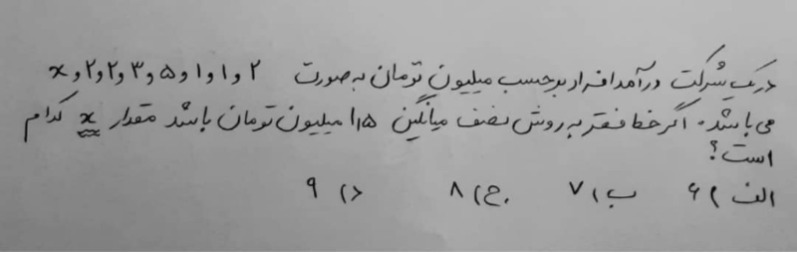 در یک شرکت درآمد افراد برحسب میلیون تومان به صورت ۲ و ۱ و ۱ و ۵ و ۳ و ۲ و ۲ و x
می باشد. اگر خط فقر به روش نصف میانگین ۱٫۵ میلیون تومان باشد مقدار x کدام
است؟
الف) ۶ ب) ۷ ج) ۸ د) ۹